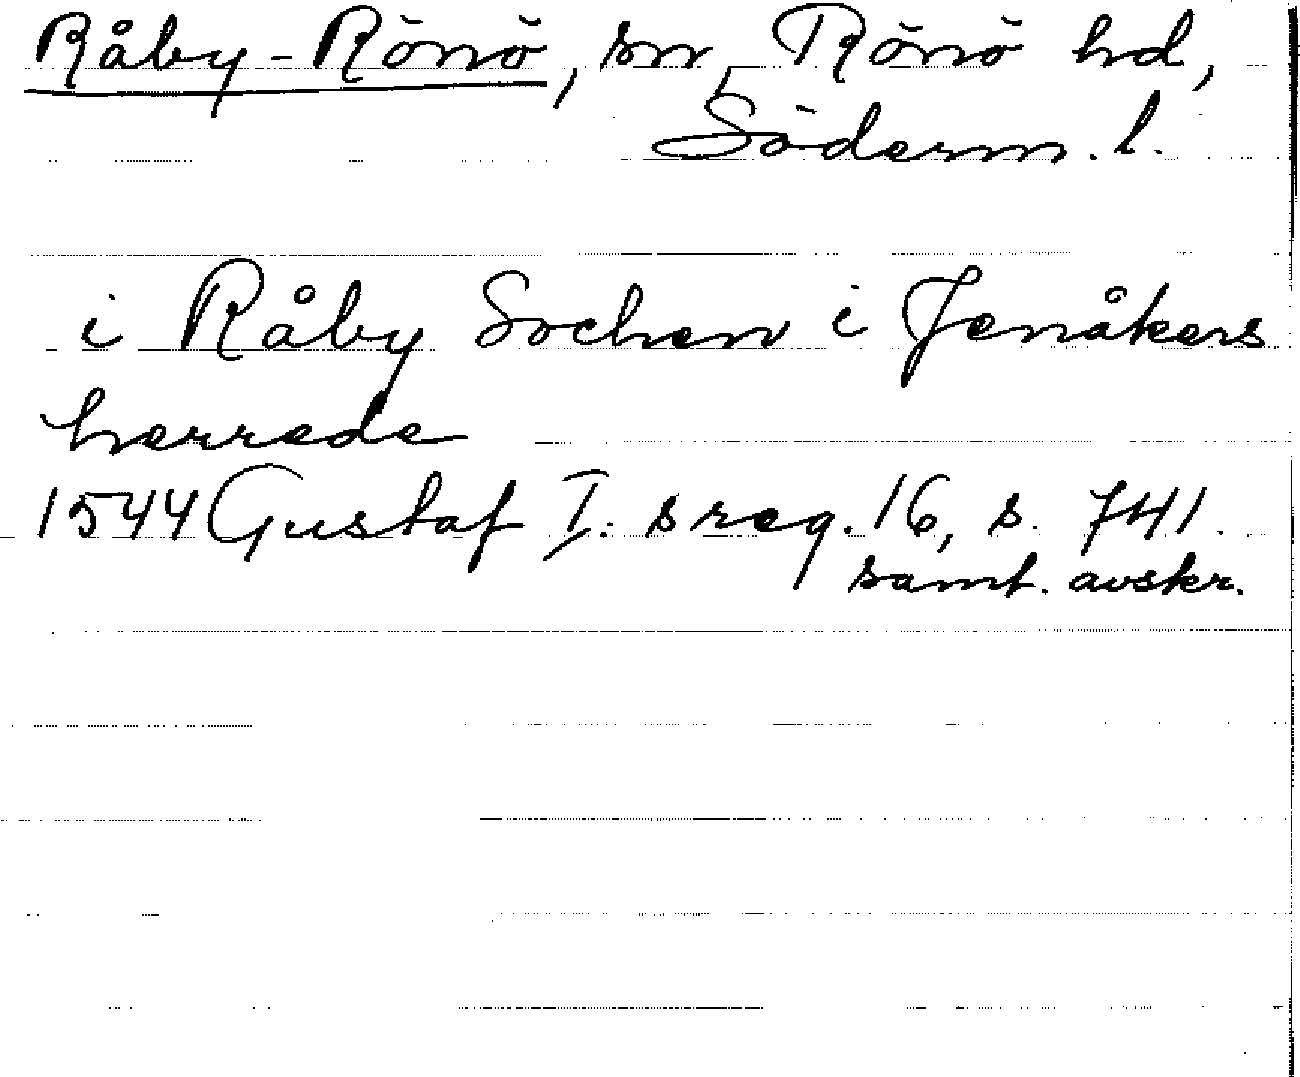 Råby-Rönö, sn, Rönö hd,
Söderm. l.
i Råby Sochen i Jenåkers
herrede
1544 Gustaf I:s reg. 16, s. 741.
samt. avskr.